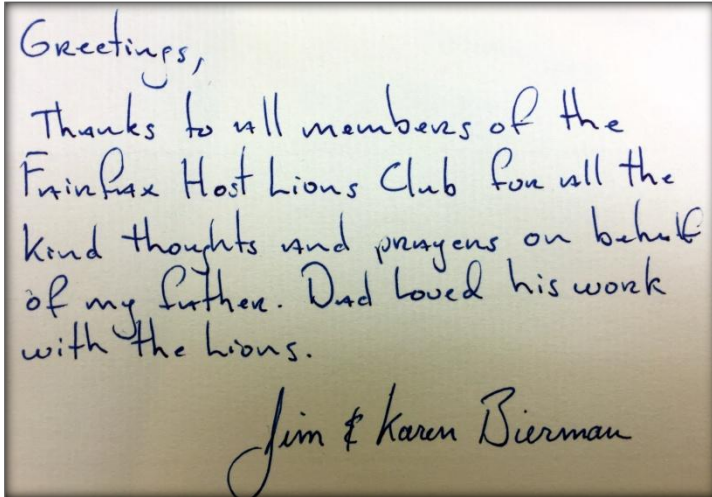 Greetings,
Thanks to all members of the
Fairfax Host Lions Club for all the
kind thoughts and prayers on behalf
of my father. Dad loved his work
with the Lions.
Jim & Karen Bierman